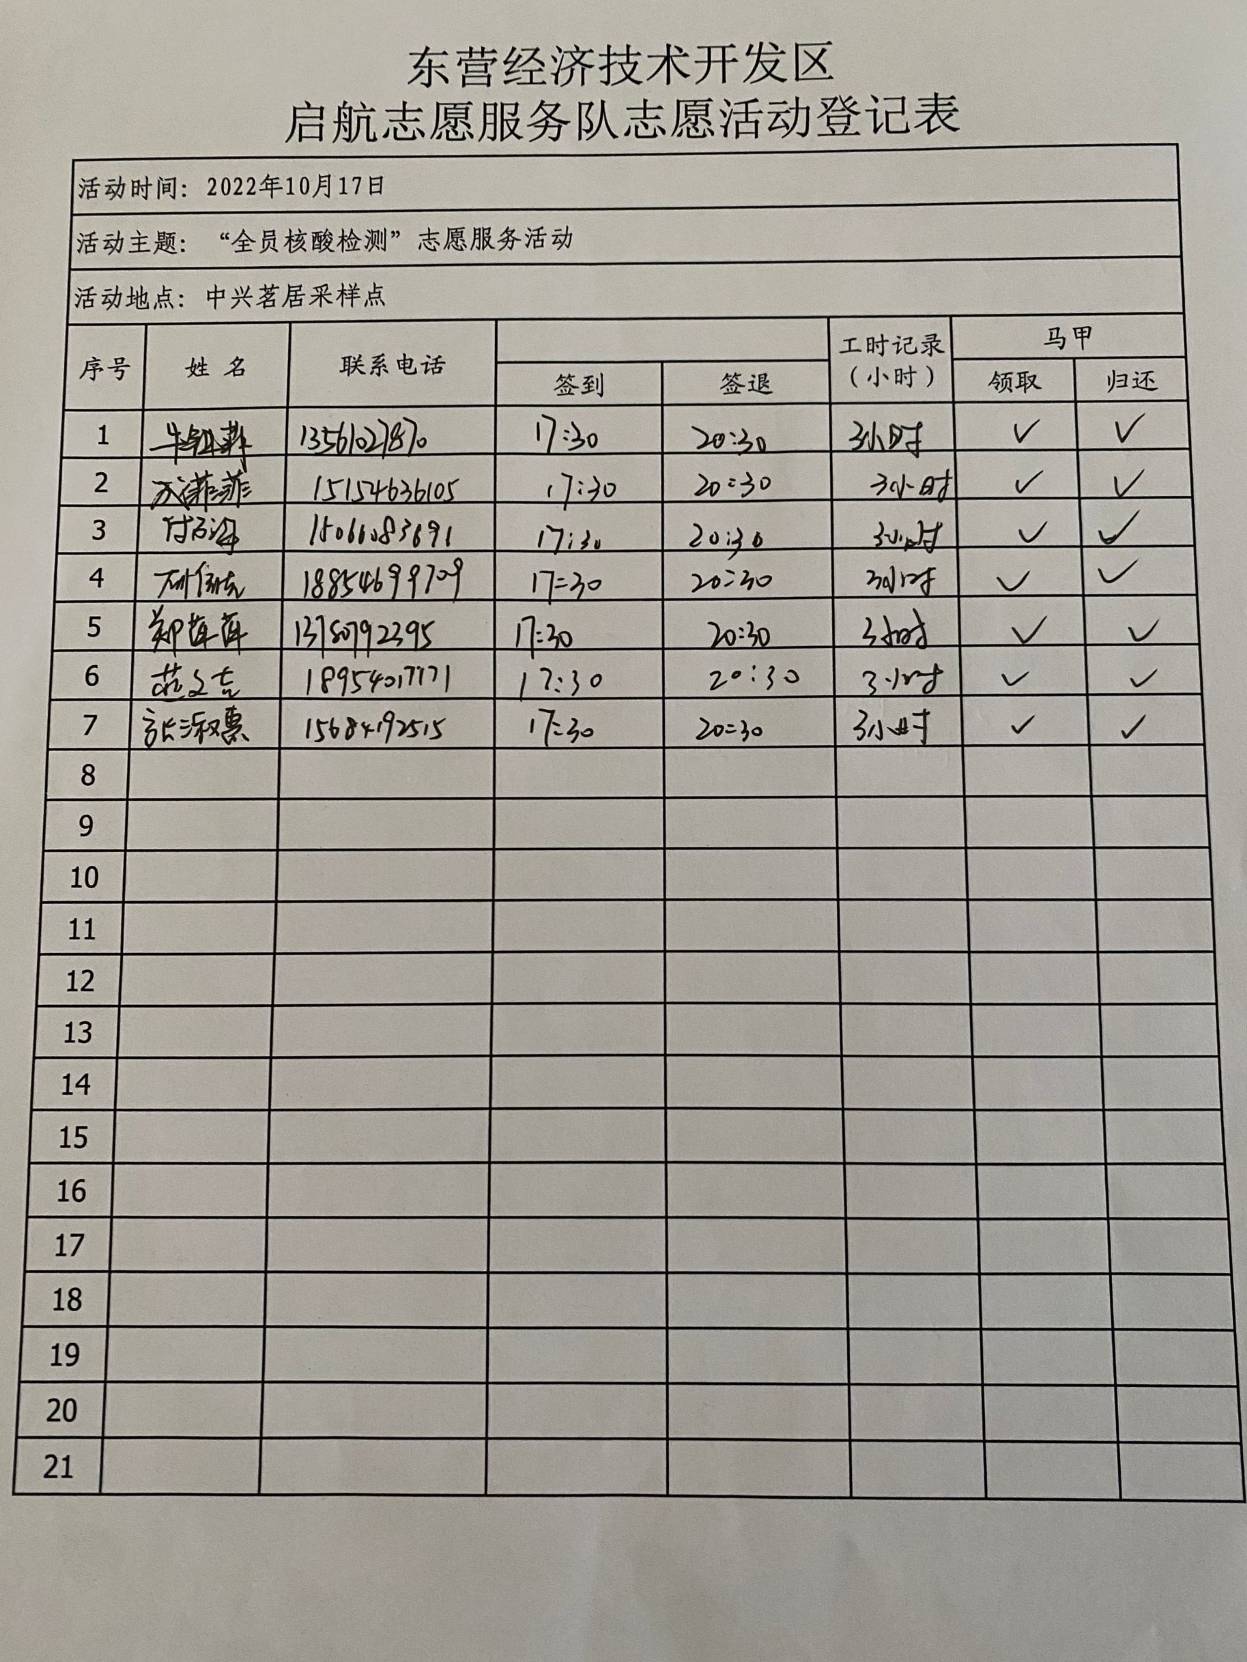 东营经济技术开发区
启航志愿服务队志愿活动登记表
活动时间：2022年10月17日
活动主题：“全员核酸检测”志愿服务活动
活动地点：中兴茗居采样点
序号 姓名 联系电话 签到 签退 工时记录（小时） 马甲 领取 归还
1 13561027870 17:30 20:30 3小时 ✓ ✓
2 菲菲 15154636105 17:30 20:30 3小时 ✓ ✓
3 15066083691 17:30 20:30 3小时 ✓ ✓
4 18854699709 17:30 20:30 3小时 ✓ ✓
5 郑苗苗 13780792395 17:30 20:30 3小时 ✓ ✓
6 18954017171 17:30 20:30 3小时 ✓ ✓
7 张淑惠 15684192515 17:30 20:30 3小时 ✓ ✓
8
9
10
11
12
13
14
15
16
17
18
19
20
21